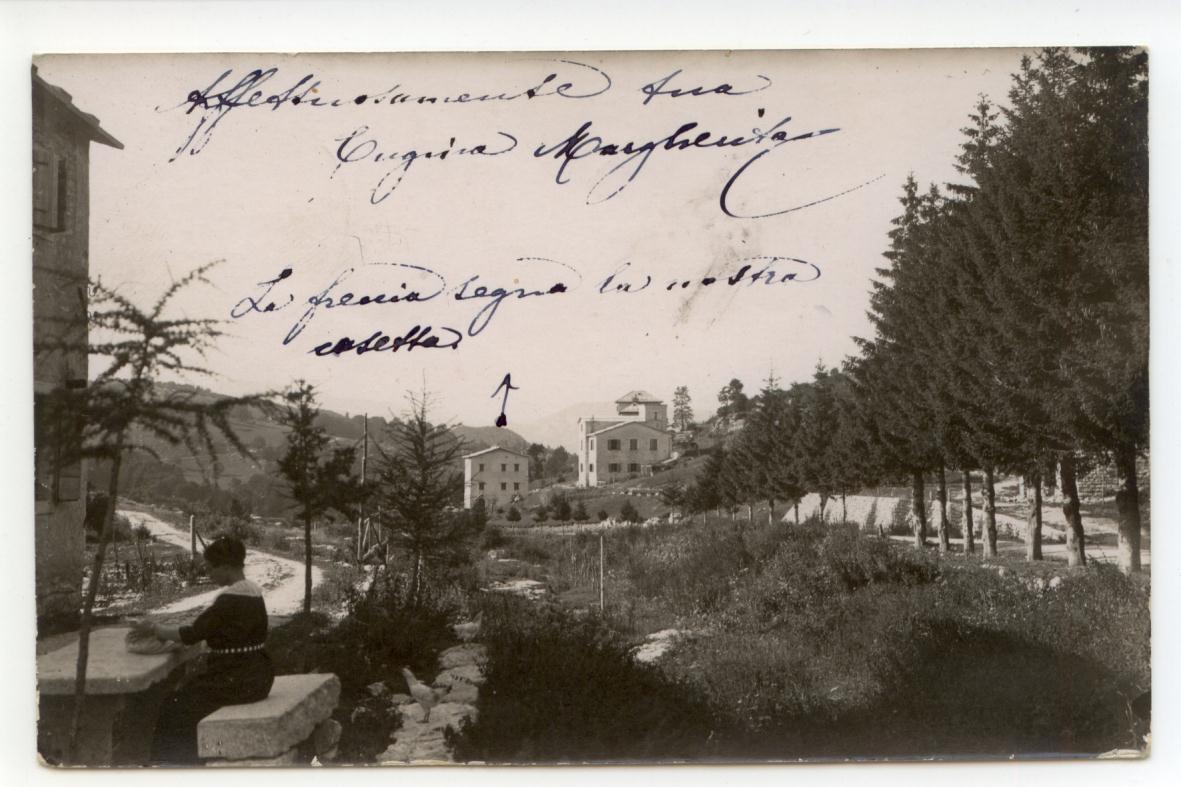 Affettuosamente tua
Cugina Margherita
La freccia segna la nostra
casetta.